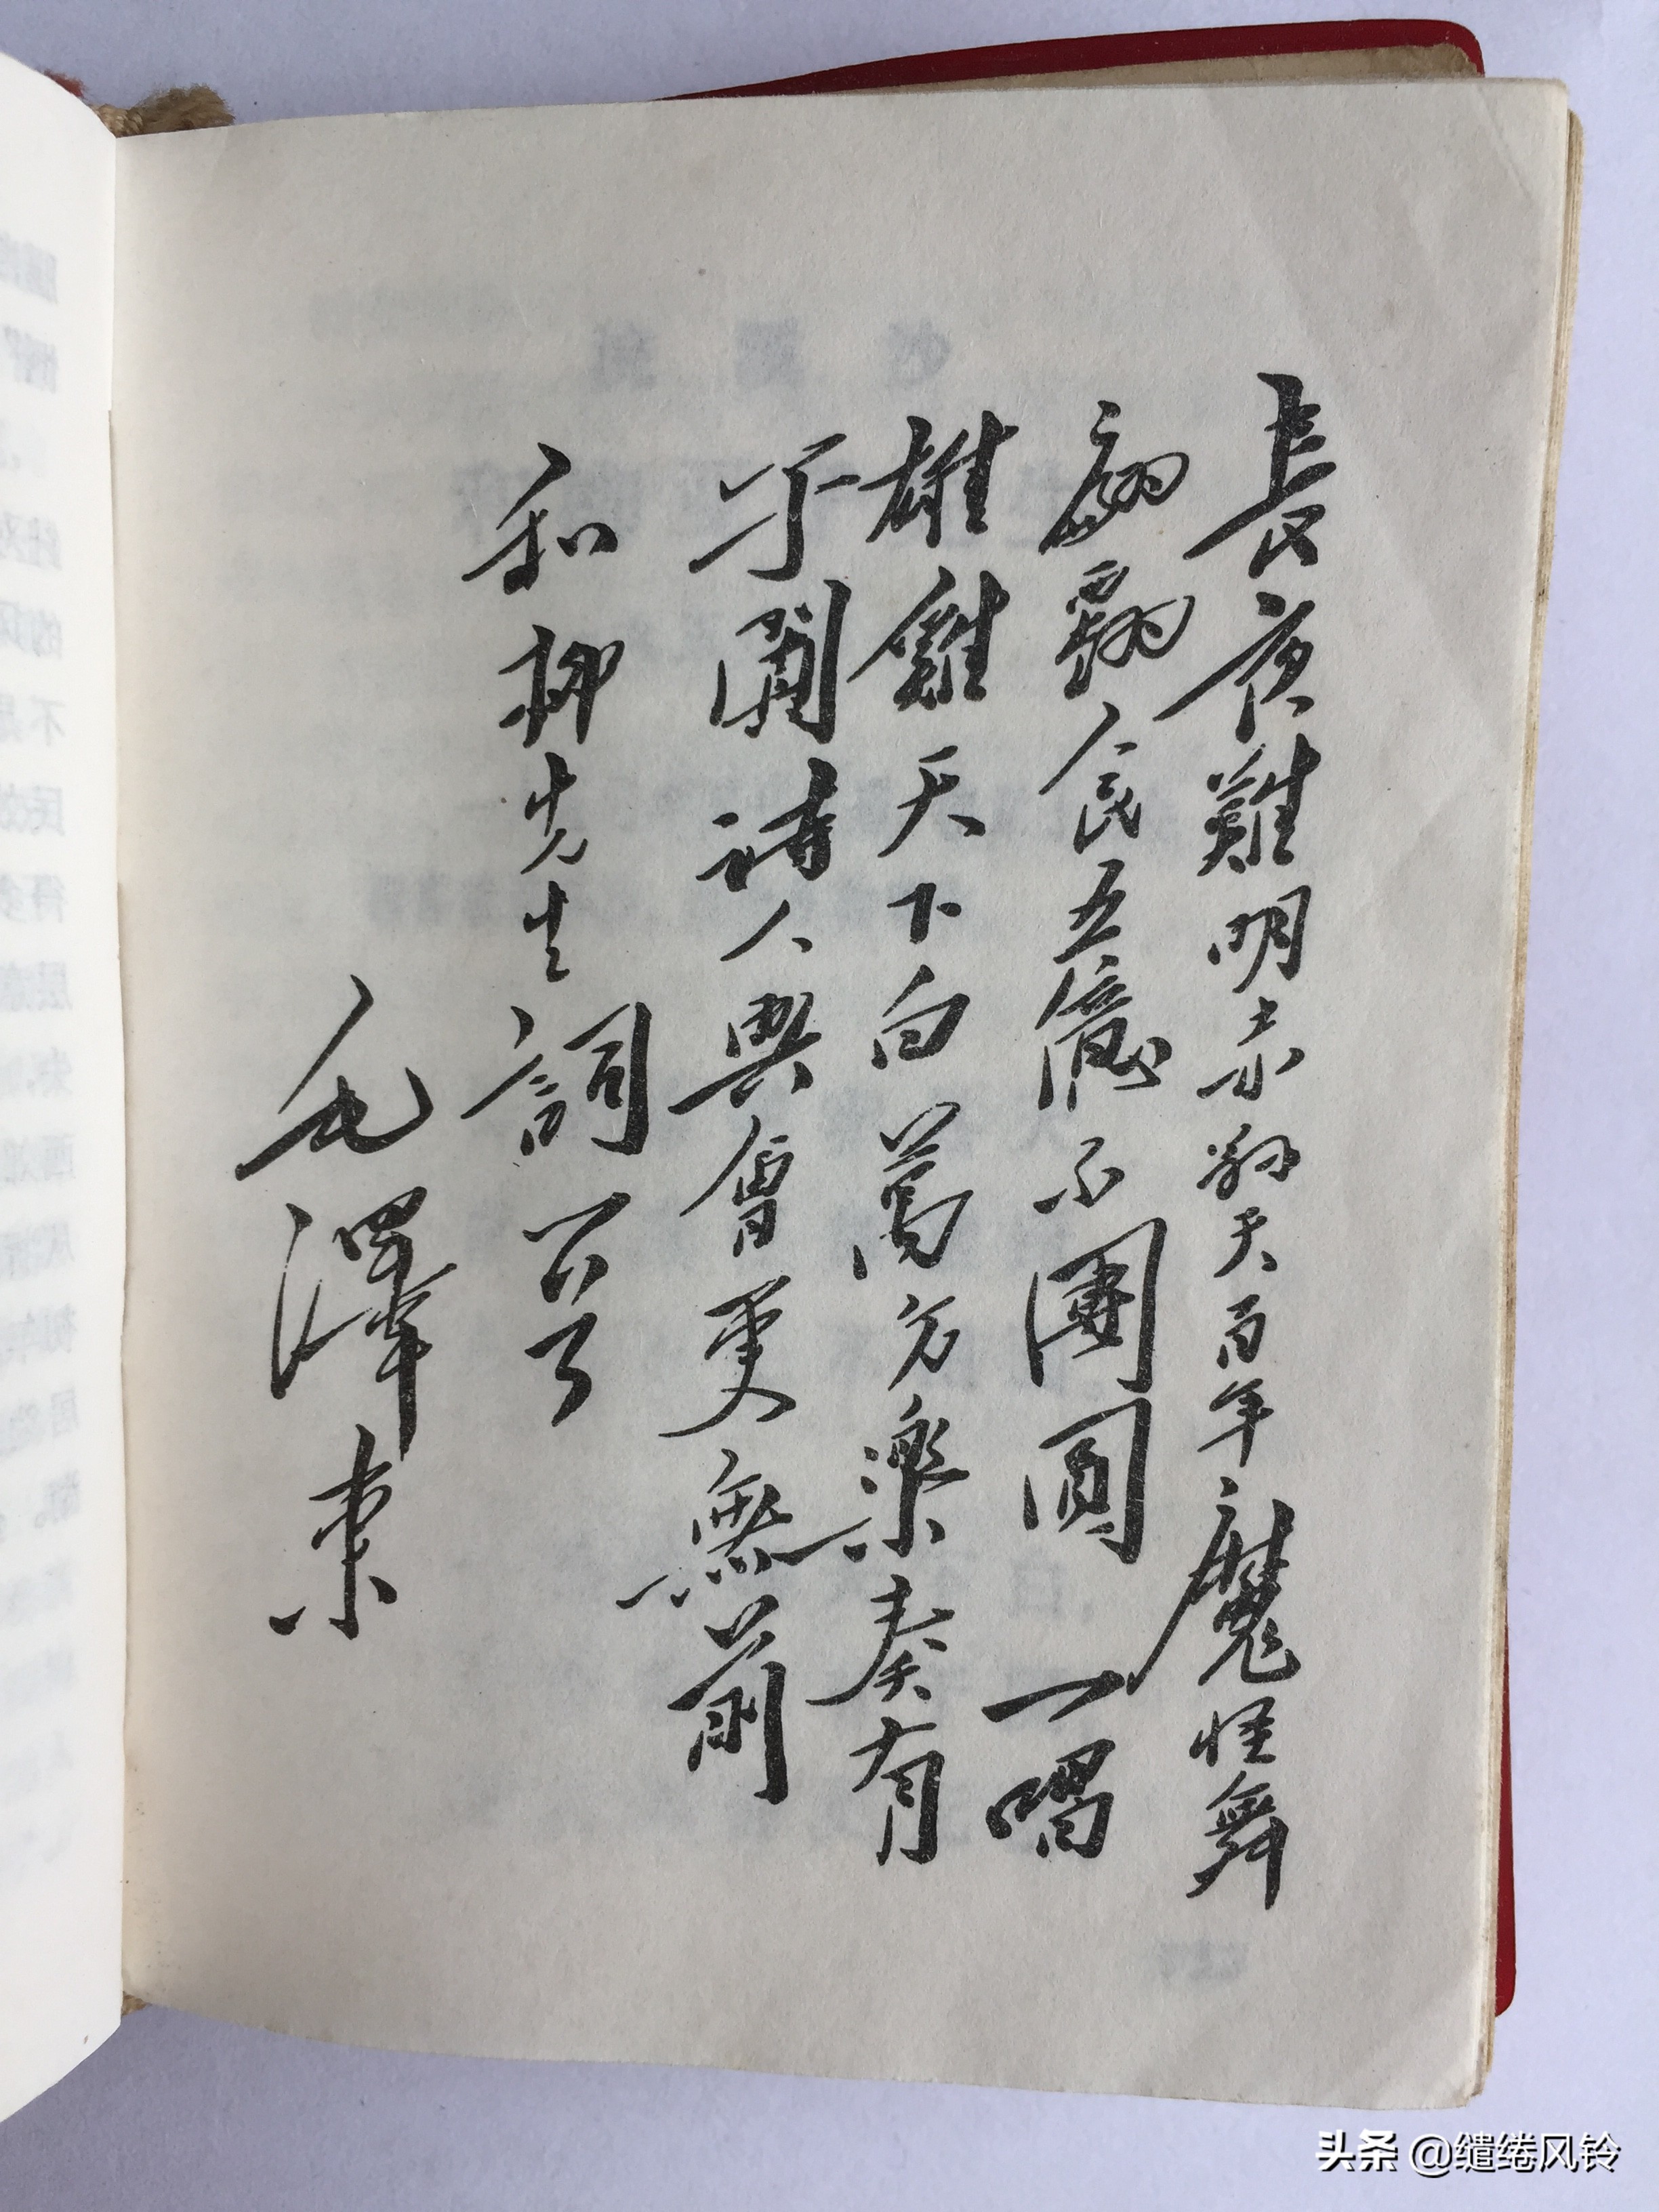 長夜難明赤縣天百年魔怪舞
翩翩人民五億不團圓一唱
雄雞天下白萬方樂奏有
于闐詩人興會更無前
和柳先生詞一首
毛澤東
头条 @缱绻风铃